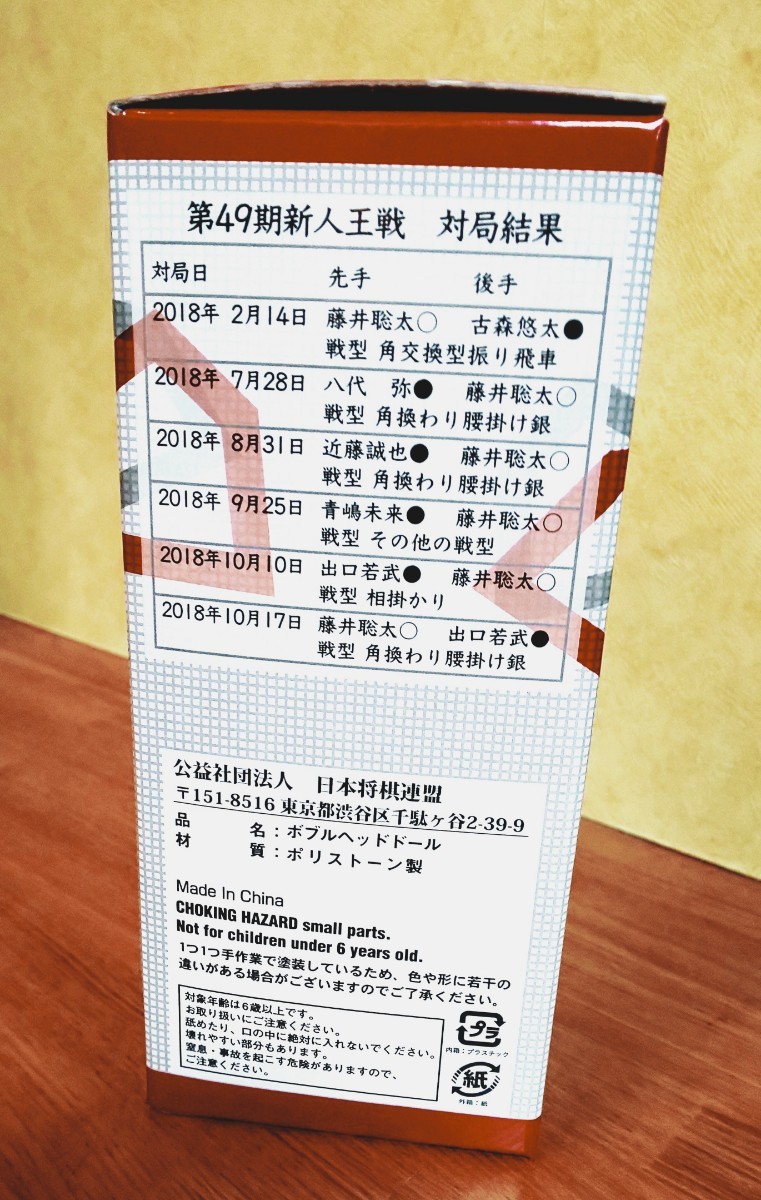 第49期新人王戦　対局結果
対局日　先手　後手
2018年 2月14日 藤井聡太○ 古森悠太●
戦型 角交換型振り飛車
2018年 7月28日 八代　弥● 藤井聡太○
戦型 角換わり腰掛け銀
2018年 8月31日 近藤誠也● 藤井聡太○
戦型 角換わり腰掛け銀
2018年 9月25日 青嶋未来● 藤井聡太○
戦型 その他の戦型
2018年10月10日 出口若武● 藤井聡太○
戦型 相掛かり
2018年10月17日 藤井聡太○ 出口若武●
戦型 角換わり腰掛け銀
公益社団法人　日本将棋連盟
〒151-8516 東京都渋谷区千駄ヶ谷2-39-9
品　名：ボブルヘッドドール
材　質：ポリストーン製
Made In China
CHOKING HAZARD small parts.
Not for children under 6 years old.
1つ1つ手作業で塗装しているため、色や形に若干の
違いがある場合がございますのでご了承ください。
対象年齢は6歳以上です。
お取り扱いにご注意ください。
舐めたり、口の中に絶対に入れないでください。
壊れやすい部分もあります。
窒息・事故を起こす危険がありますので、
ご注意ください。
プラ
内箱：プラスチック
紙
外箱：紙